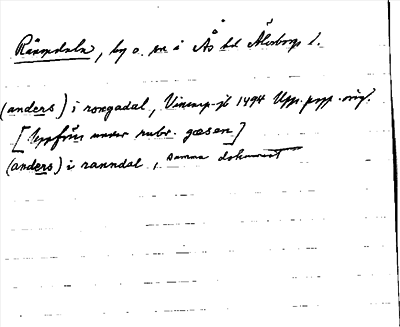 by o. sn i Ås hd Älvsborgs l.
(anders) i rongadal, 1494 Upp. papp. orig.
[Uppförs under rubr. gæsen]
(anders) i ranndal, samma dokument